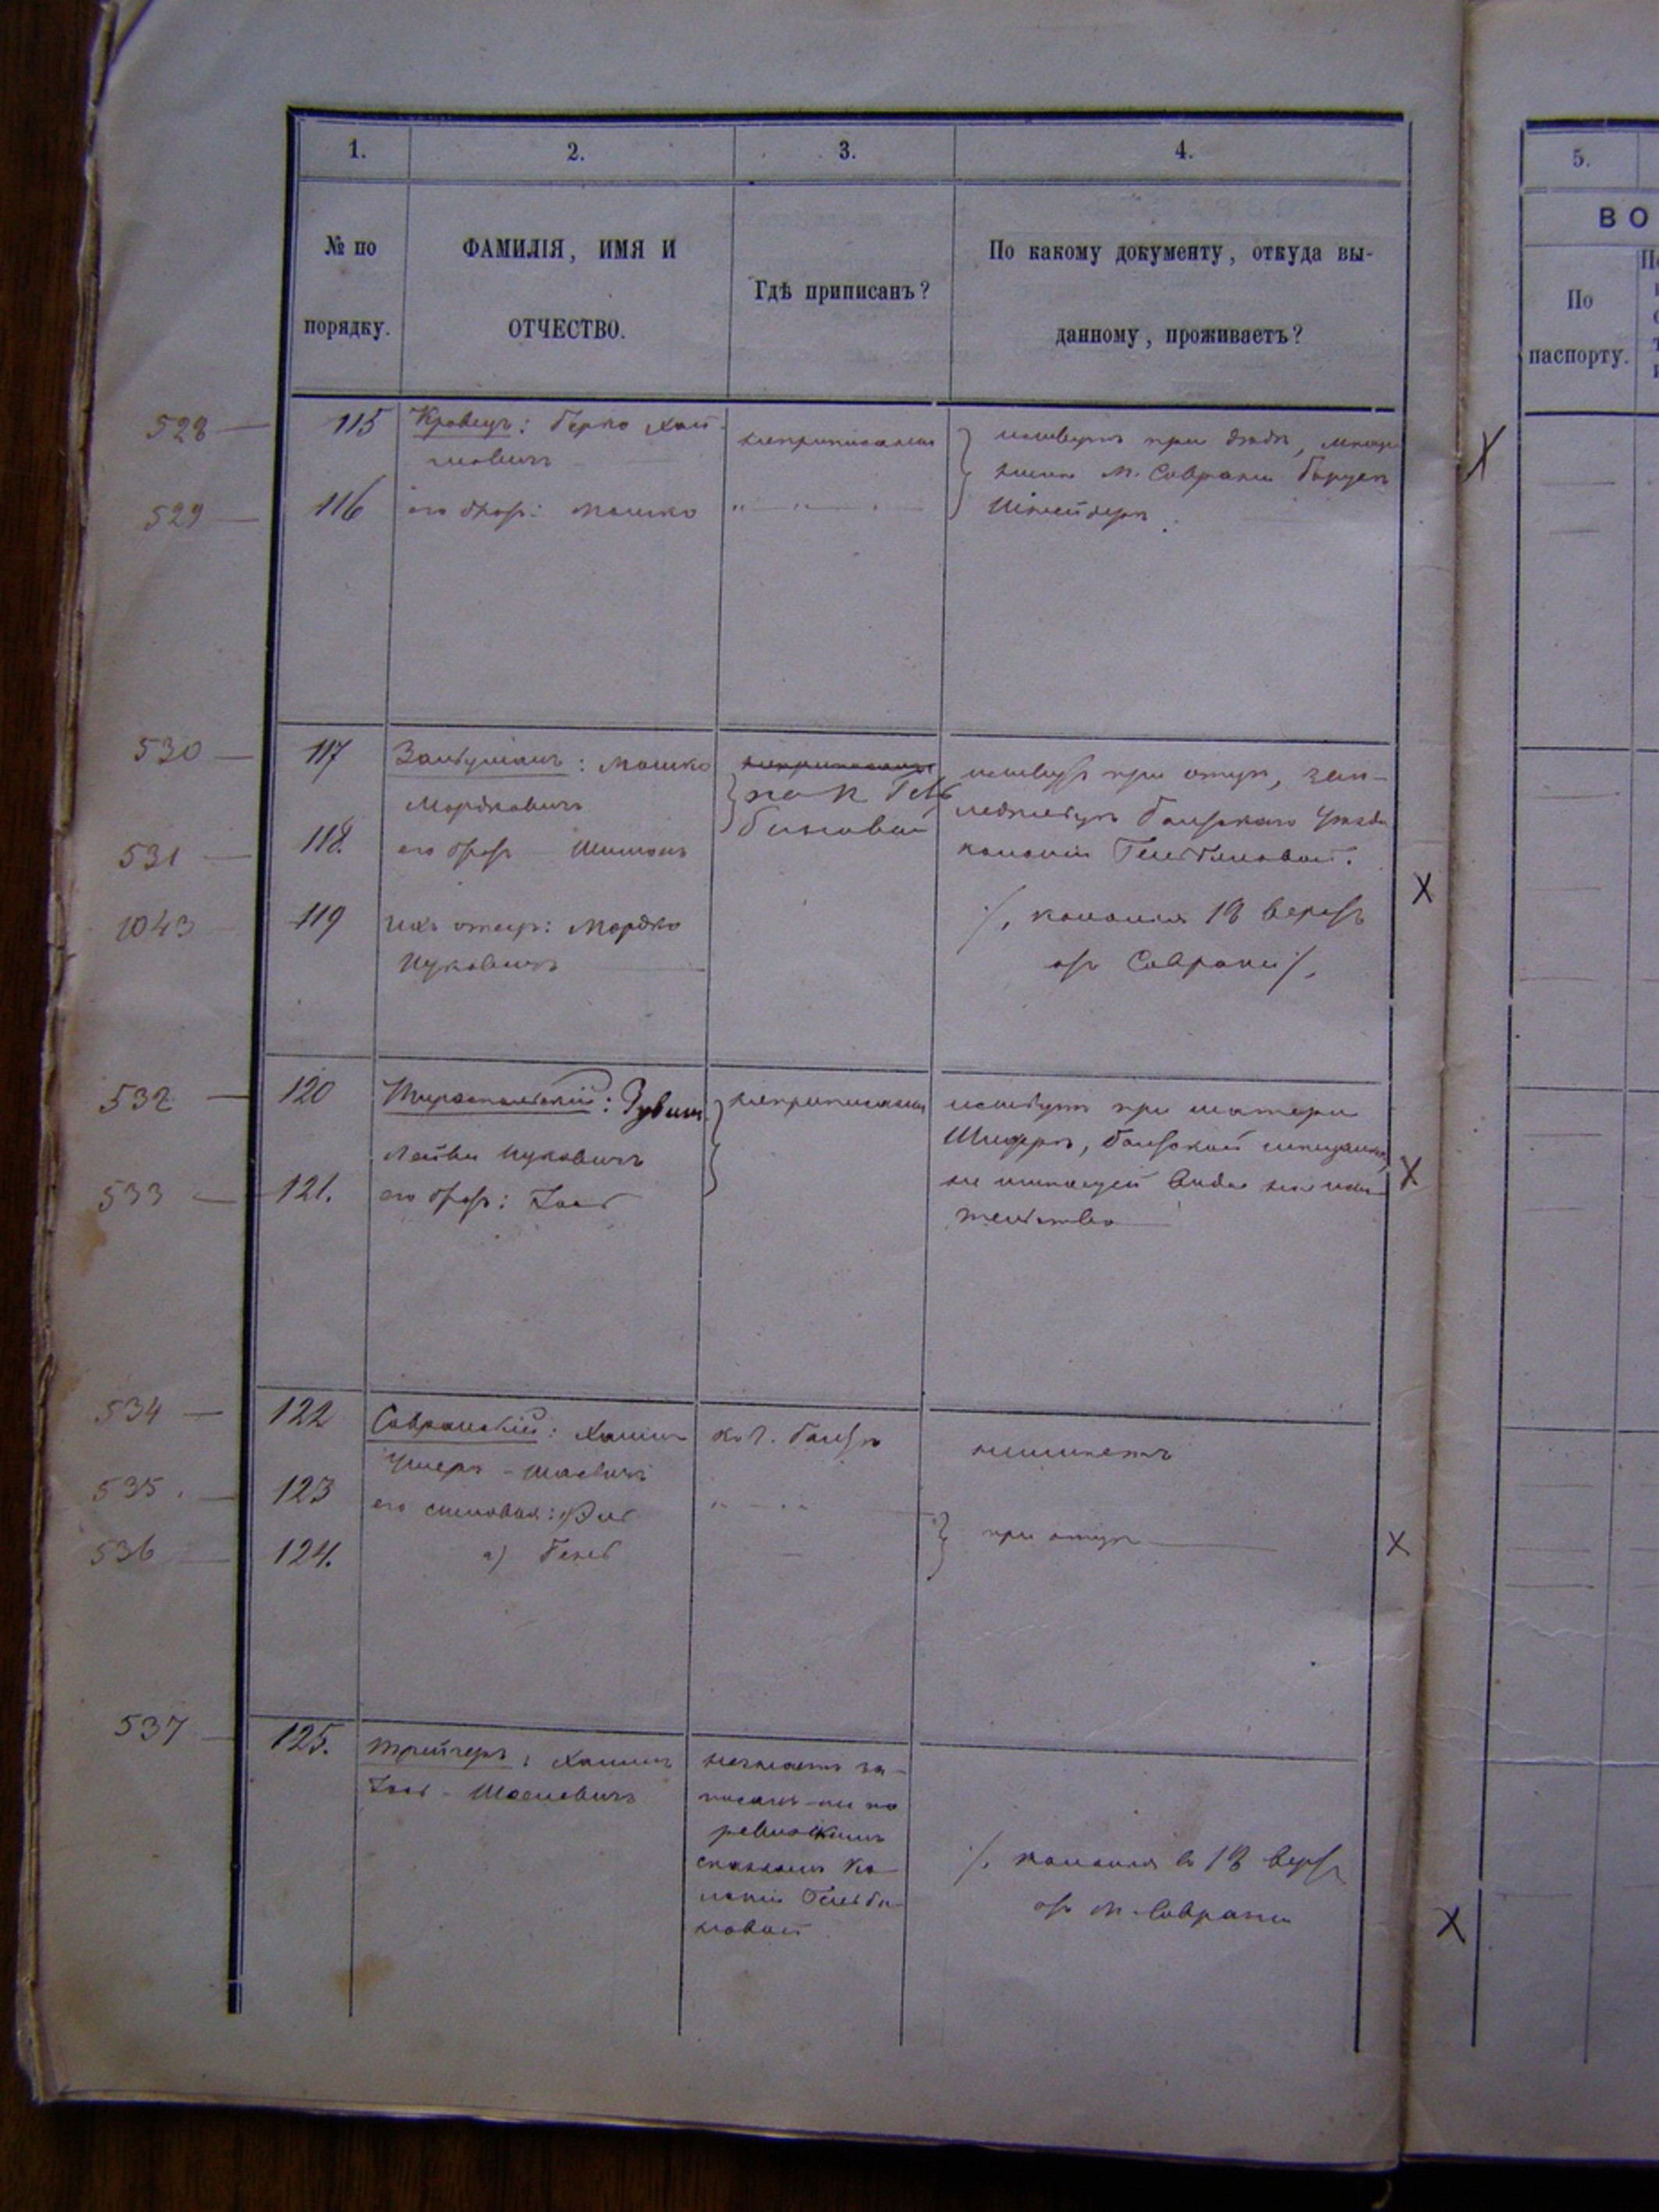 1. 2. 3. 4. 5.
№ по порядку.
ФАМИЛІЯ, ИМЯ И
ОТЧЕСТВО.
Гдѣ приписанъ?
По какому документу, откуда вы-
данному, проживаетъ?
ВО
По
паспорту.
528 — 115 Кравецъ: Берко Хаи-
мовичъ
неприписаны
живутъ при дядѣ,
м. Саврани
Шнейдерѣ
529 — 116 его братъ: Мошко
530 — 117 Зальцманъ: Мошко
Мордковичъ
неприписаны
кол. Голь
биновой
живутъ при отцѣ, зем-
ледѣльцѣ Балтскаго уѣзда
колоніи Гольбиновой.
531 — 118. его братъ Шимонъ
1043 — 119 ихъ отецъ: Мордко
Ицковичъ
/. колонія 18 верстъ
отъ Саврани /.
532 — 120 Тираспольскій:
Лейви Ицковичъ
неприписаны
живутъ при матери
балтской мѣщанкѣ,
не имѣющей вида на жи-
тельство
533 — 121. его братъ: Іось
534 — 122 Савранскій: Хаимъ
къ г. Балтѣ
неимѣетъ
535. — 123 его сыновья: 1) Эль
536 — 124. 2) Бень
при отцѣ
537 — 125. Трейгеръ: Хаимъ
Іось-
незнаетъ за-
писанъ-ли по
ревизскимъ
сказкамъ ко-
лоніи Гольби-
новой
/. колонія въ 18 верст.
отъ м. Саврани